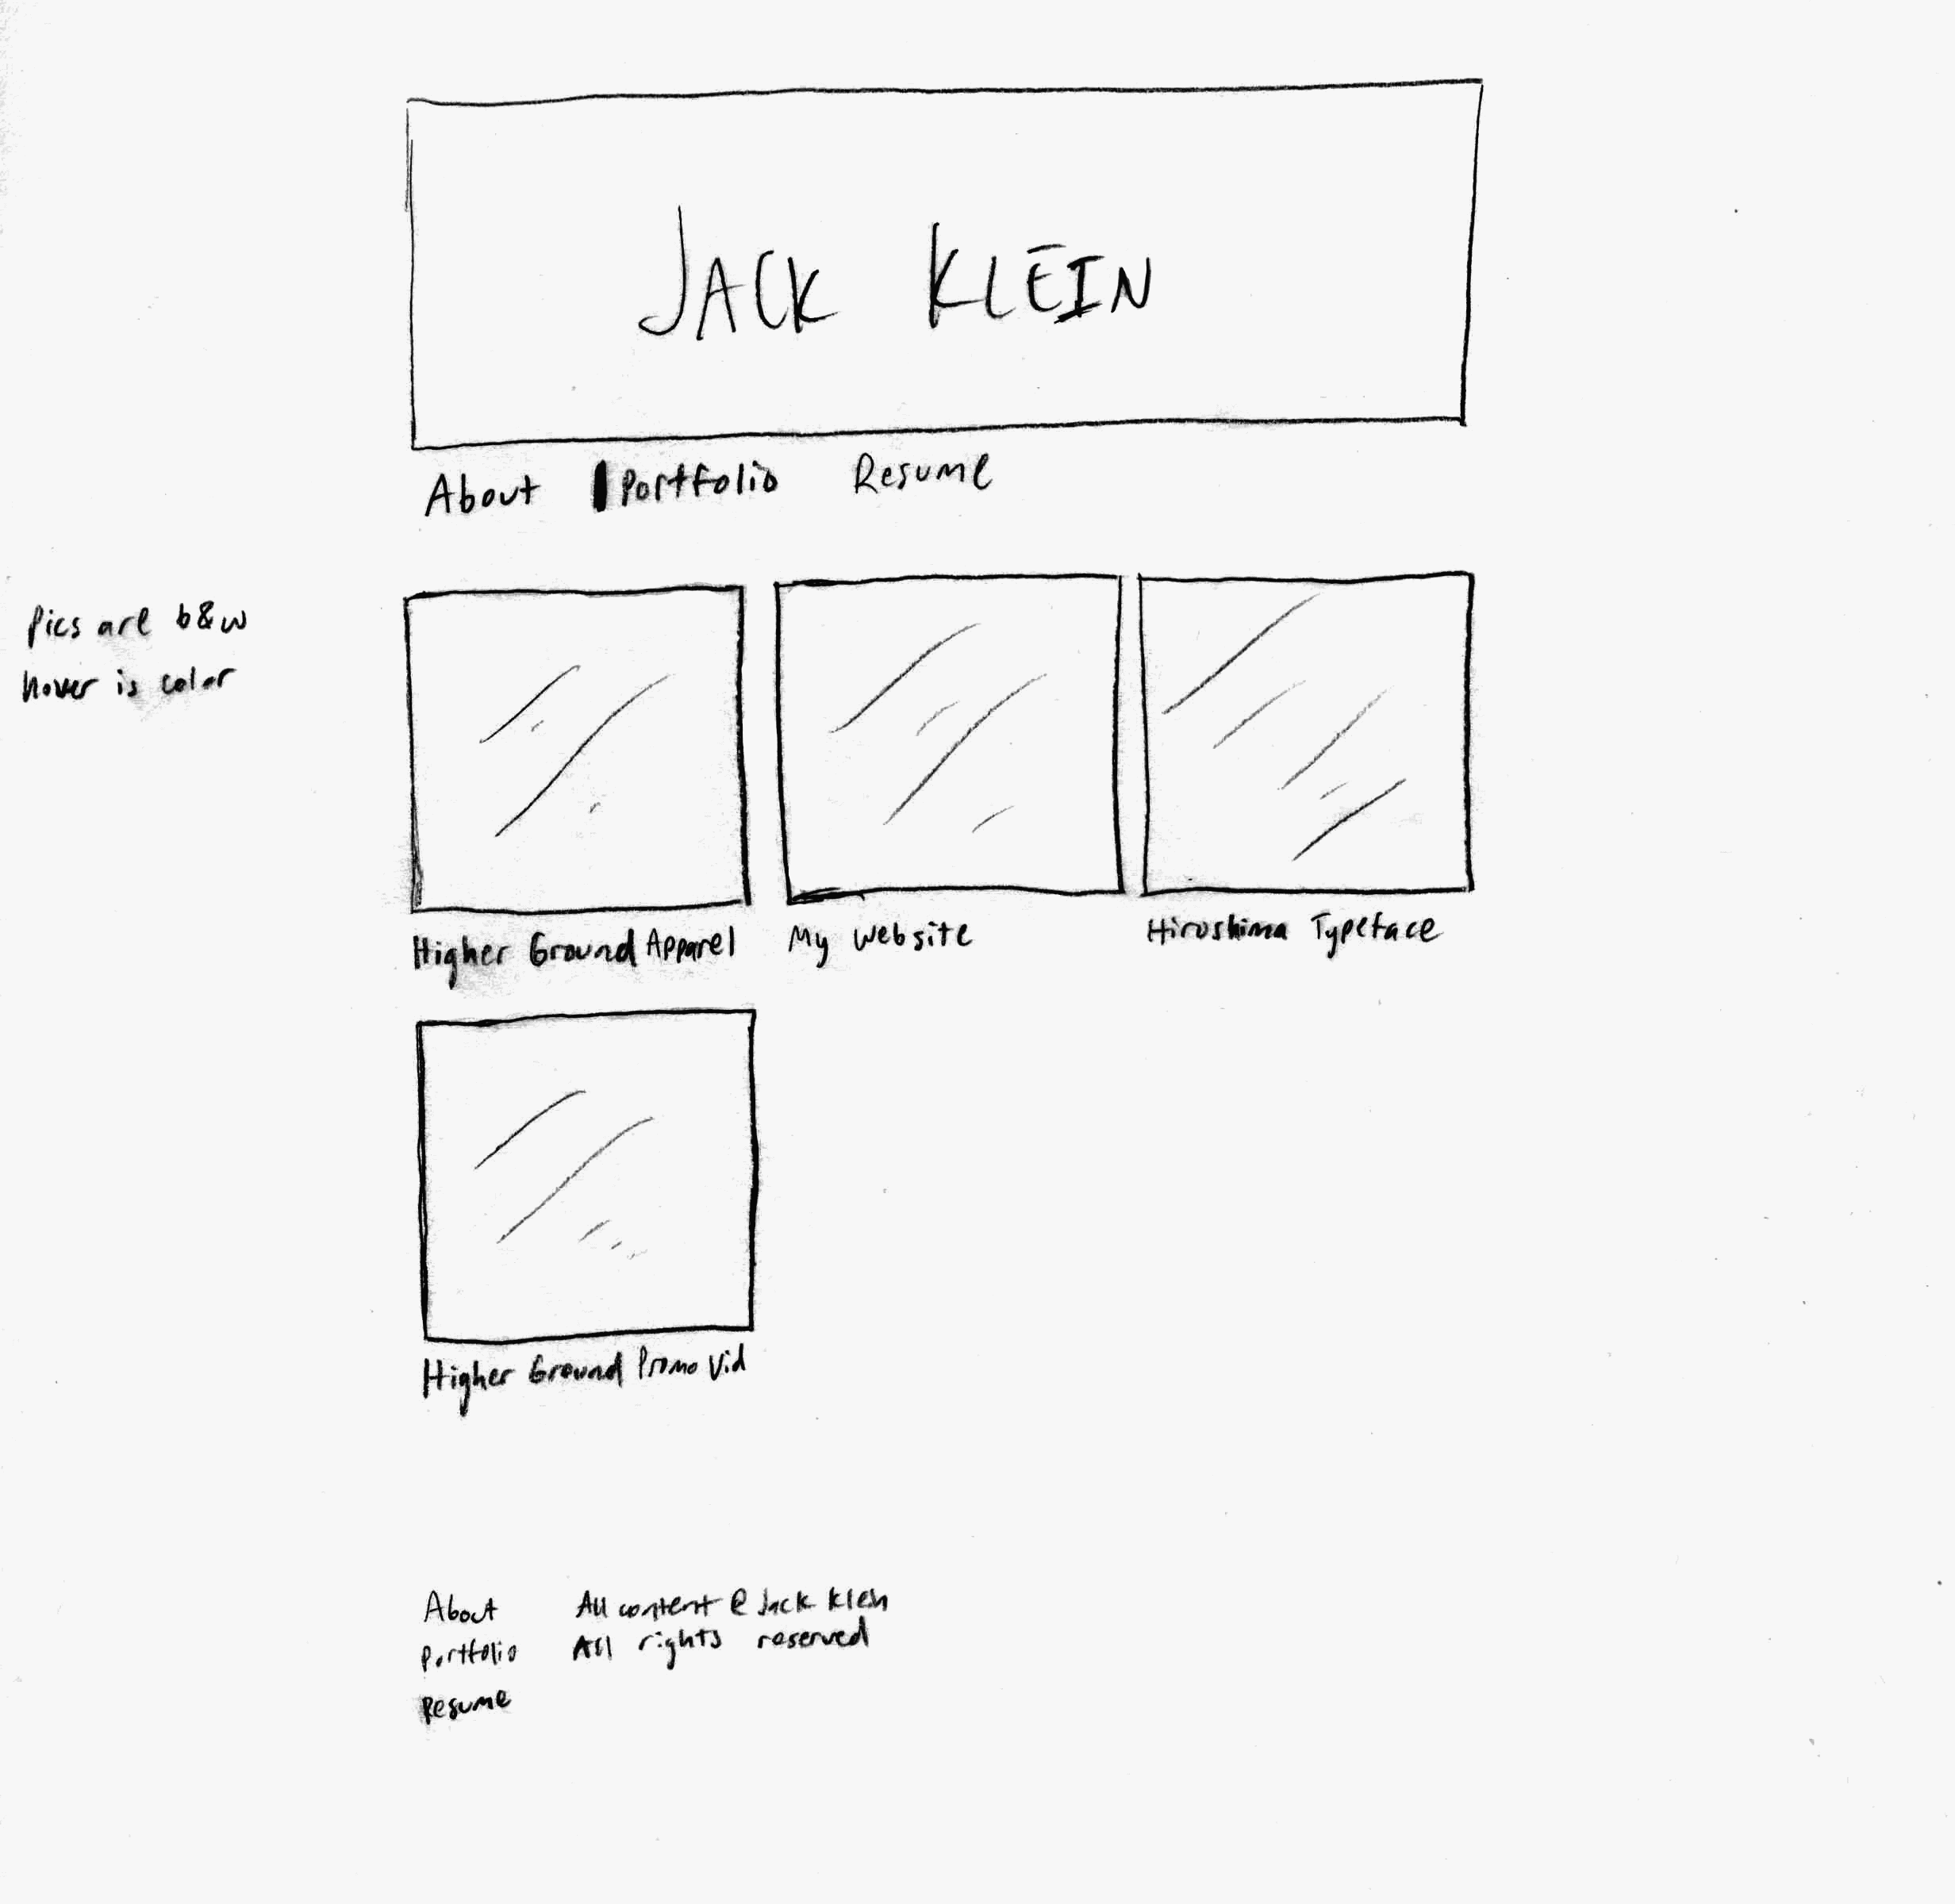 JACK KLEIN
About Portfolio Resume
Pics are b&w
hover is color
Higher Ground Apparel
My Website
Hiroshima Typeface
Higher Ground Promo Vid
About
Portfolio
Resume
All content @ Jack Klein
All rights reserved